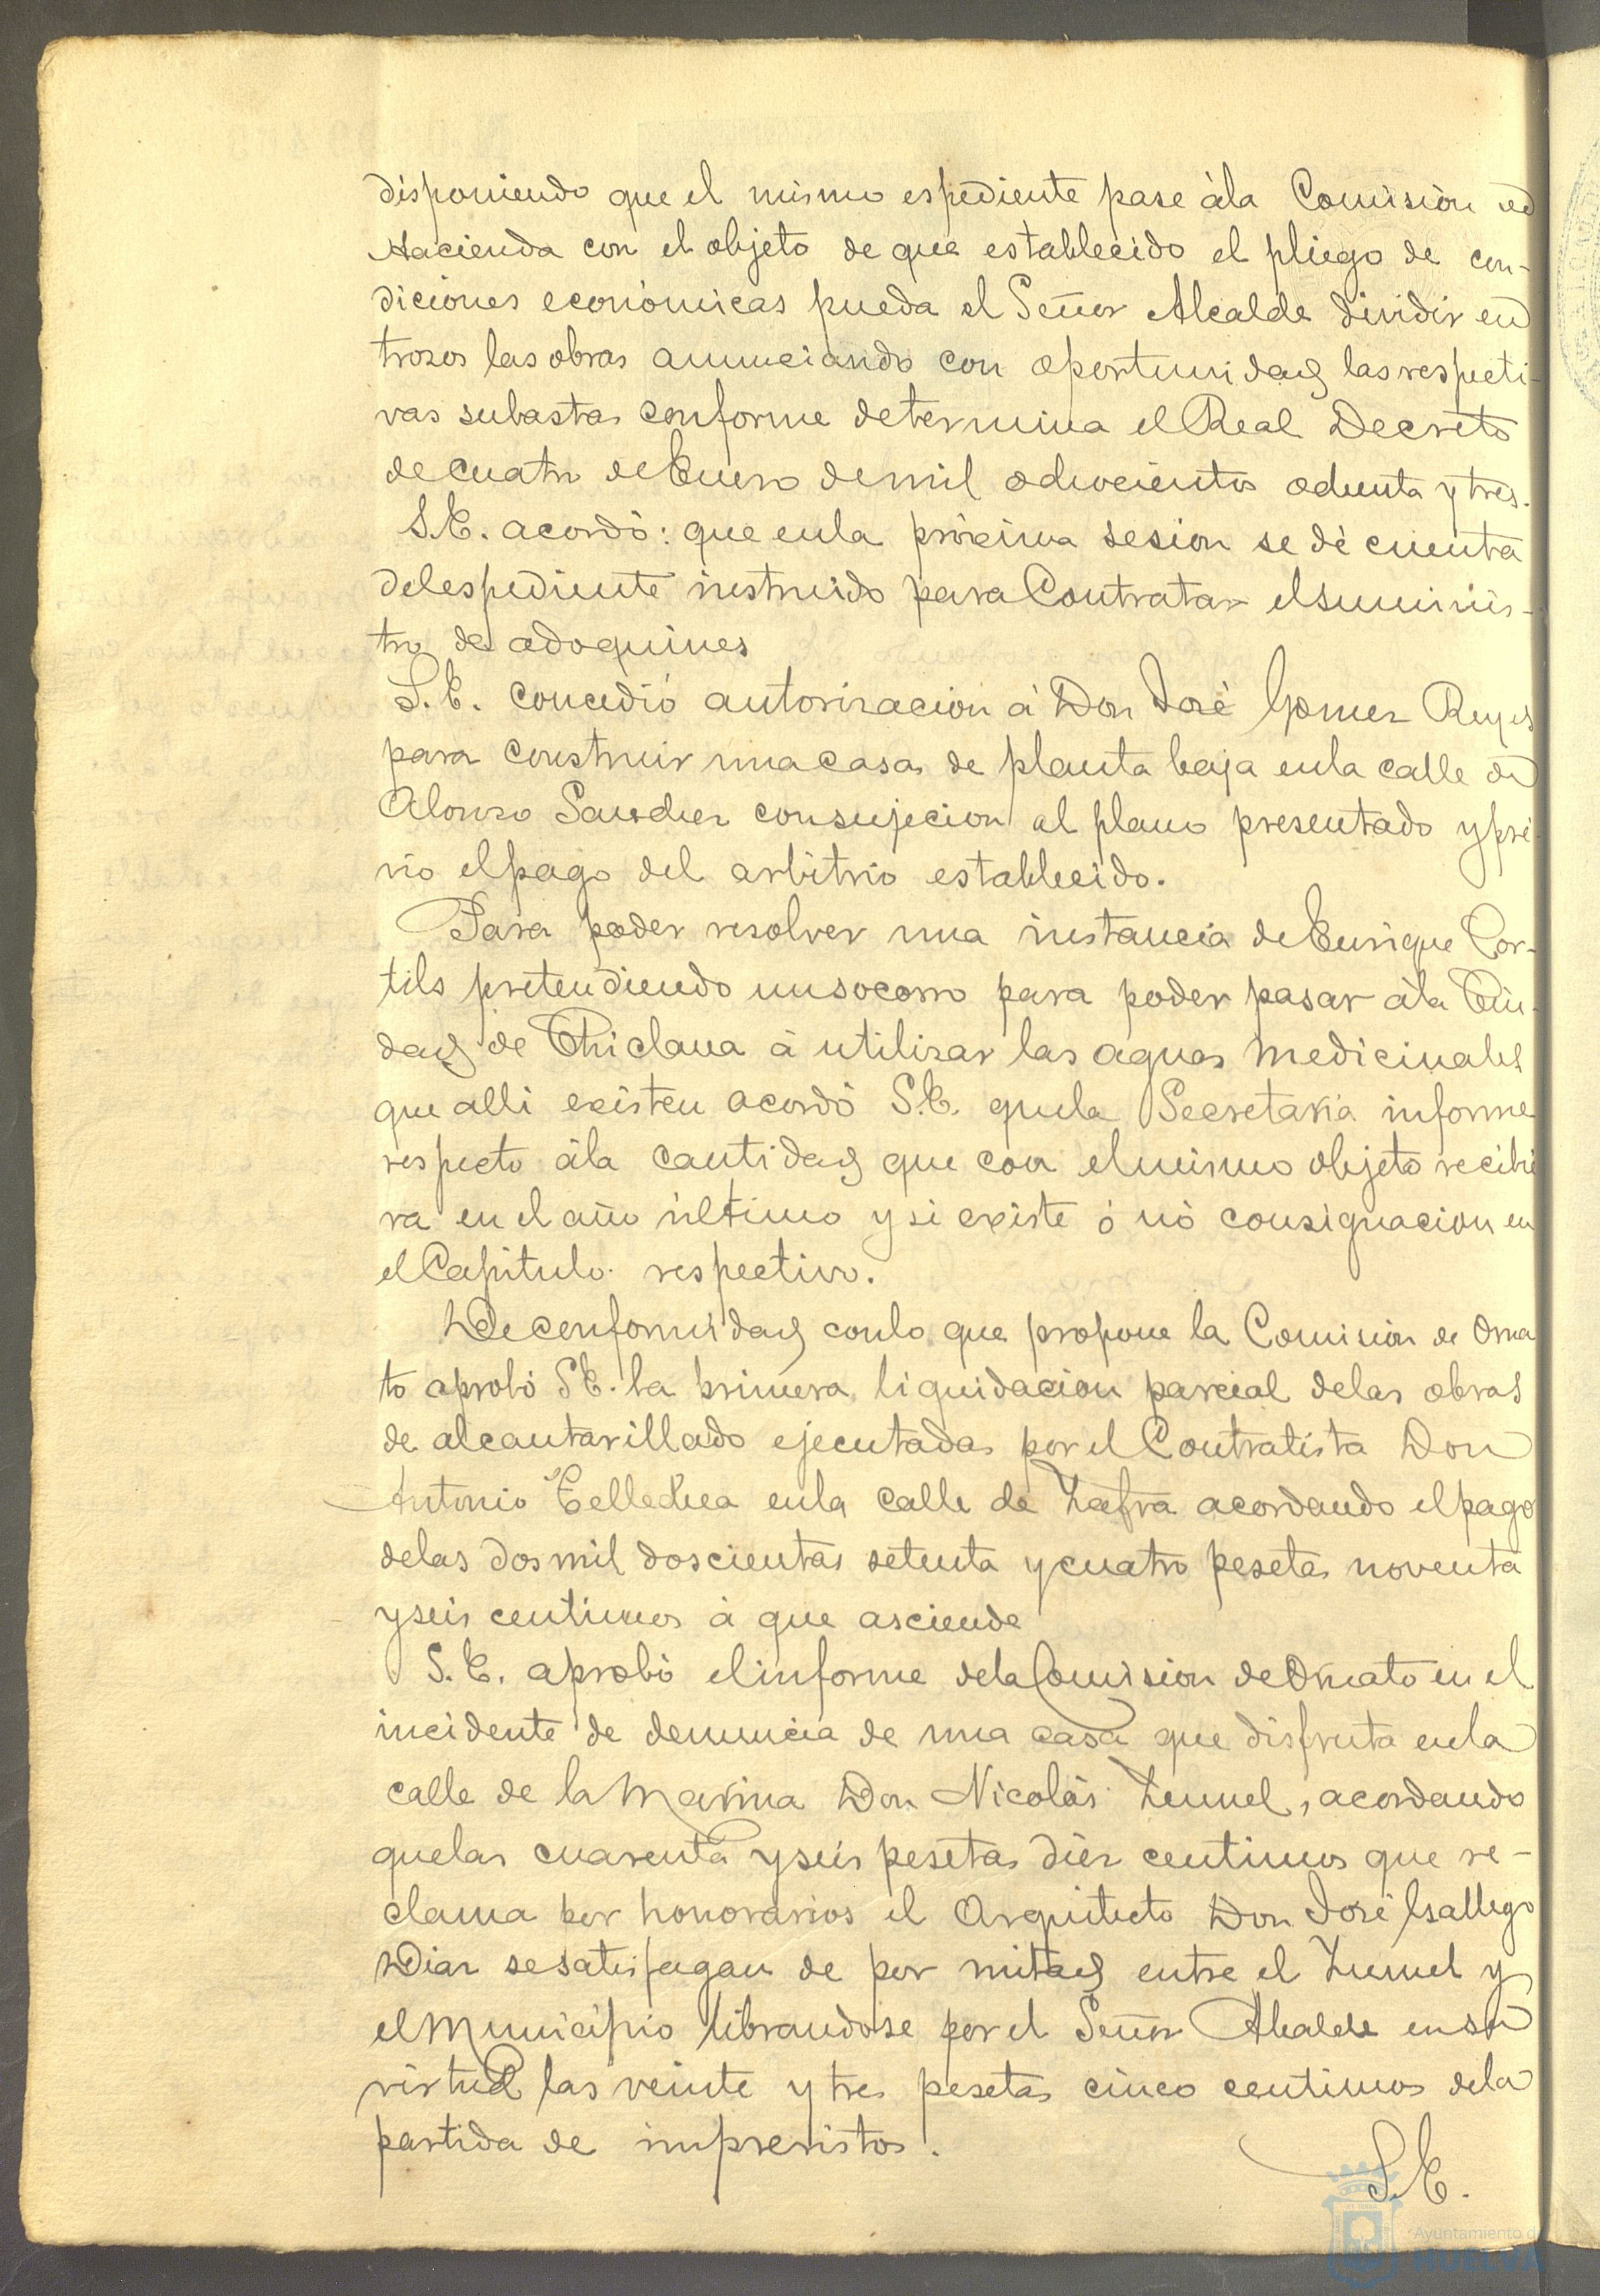 disponiendo que el mismo espediente pase àla Comisiòn de
Hacienda con el objeto de que establecido el pliego de con-
diciones econòmicas pueda el Señor Alcalde dividir en
trozos las obras anunciando con oportunidad las respecti-
vas subastas conforme determina el Real Decreto
de cuatro de Enero de mil ochocientos ochenta y tres.
S.E. acordò: que enla pròxima sesion se dè cuenta
delespediente instruido para Contratar elsuminis-
tro de adoquines
S.E. concediò autorizacion à Don Josè Gomez Reyes
para construir una casa de planta baja enla calle de
Alonso Sanchez consujecion al plano presentado y pre-
vio elpago del arbitrio establecido.
Para poder resolver una instancia de Enrique Cor-
tils pretendiendo unsocorro para poder pasar àla Ciu-
dad de Chiclana à utilizar las aguas medicinales
que alli existen acordò S.E. quela Secretaria informe
respecto àla cantidad que con elmismo objeto recibie
ra en el año ùltimo y si existe ò nò consignacion en
el Capitulo respectivo.
De conformidad conlo que propone la Comision de Orna
to aprobò S.E. la primera liquidacion parcial delas obras
de alcantarillado ejecutadas por el Contratista Don
Antonio Tellechea enla calle de Zafra acordando elpago
delas dos mil doscientas setenta y cuatro pesetas noventa
y seis centimos à que asciende
S.E. aprobò elinforme dela Comision de Ornato en el
incidente de denuncia de una casa que disfruta enla
calle de la Marina Don Nicolàs Zumel, acordando
quelas cuarenta y seis pesetas diez centimos que re-
clama por honorarios el Arquitecto Don Josè Gallego
Diaz sesatisfagan de por mitad entre el Zumel y
el Municipio librandose por el Señor Alcalde en su
virtud las veinte y tres pesetas cinco centimos dela
partida de imprevistos.
S.E.
Ayuntamiento de
HUELVA